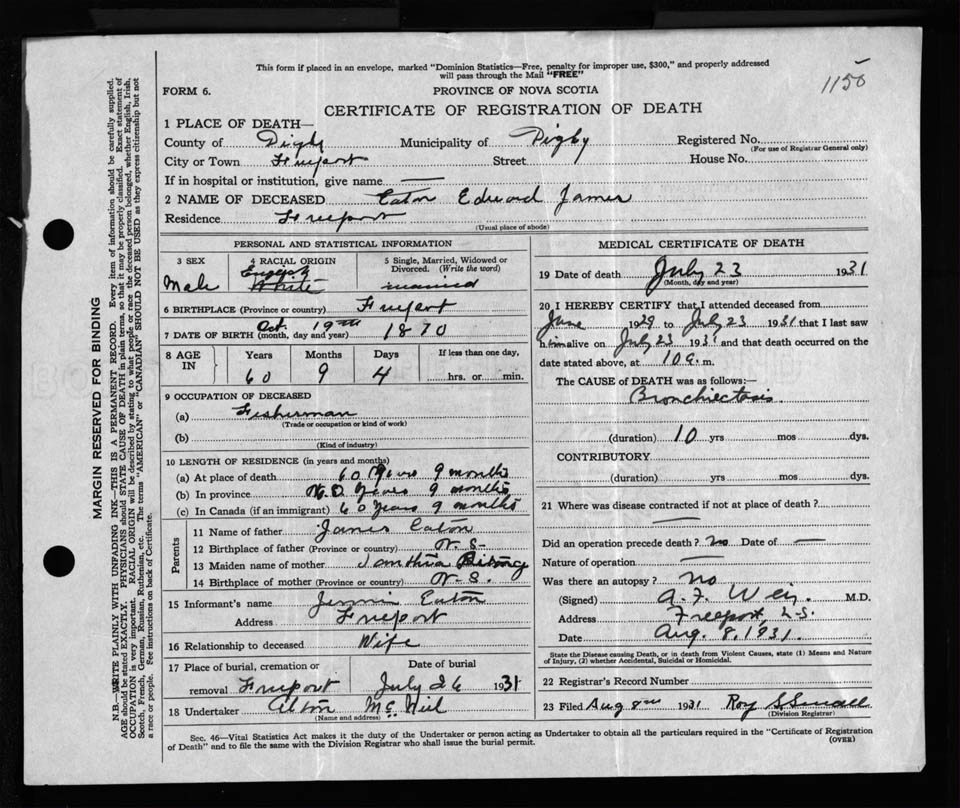 This form if placed in an envelope, marked "Dominion Statistics—Free, penalty for improper use, $300," and properly addressed
will pass through the Mail "FREE"
1150
FORM 6.
PROVINCE OF NOVA SCOTIA
CERTIFICATE OF REGISTRATION OF DEATH
1 PLACE OF DEATH—
County of Digby Municipality of Digby Registered No.
(For use of Registrar General only)
City or Town Freeport Street House No.
If in hospital or institution, give name —
2 NAME OF DECEASED Eaton Edward James
Residence Freeport
(Usual place of abode)
PERSONAL AND STATISTICAL INFORMATION
3 SEX 4 RACIAL ORIGIN 5 Single, Married, Widowed or
Divorced. (Write the word)
English
Male White married
6 BIRTHPLACE (Province or country) Freeport
7 DATE OF BIRTH (month, day and year) Oct. 19th 1870
8 AGE IN Years Months Days If less than one day,
60 9 4 hrs. or min.
9 OCCUPATION OF DECEASED
(a) Fisherman
(Trade or occupation or kind of work)
(b)
(Kind of industry)
10 LENGTH OF RESIDENCE (in years and months)
(a) At place of death 60 years 9 months
(b) In province years 9 months
(c) In Canada (if an immigrant) 60 years 9 months
Parents
11 Name of father James Eaton
12 Birthplace of father (Province or country) N. S.
13 Maiden name of mother
14 Birthplace of mother (Province or country) N. S.
15 Informant's name Eaton
Address Freeport
16 Relationship to deceased Wife
17 Place of burial, cremation or Date of burial
removal Freeport July 26 1931
18 Undertaker McNeil
(Name and address)
MEDICAL CERTIFICATE OF DEATH
19 Date of death July 23 1931
(Month, day and year)
20 I HEREBY CERTIFY that I attended deceased from
June 1929 to July 23 1931 that I last saw
him alive on July 23 1931 and that death occurred on the
date stated above, at 10 a. m.
The CAUSE of DEATH was as follows:—
Bronchiectosis
(duration) 10 yrs mos dys.
CONTRIBUTORY
(duration) yrs mos dys.
21 Where was disease contracted if not at place of death?
—
Did an operation precede death? no Date of —
Nature of operation —
Was there an autopsy? no
(Signed) A. F. Weir M.D.
Address Freeport, N.S.
Date Aug. 8, 1931.
State the Disease causing Death, or in death from Violent Causes, state (1) Means and Nature
of Injury, (2) whether Accidental, Suicidal or Homicidal.
22 Registrar's Record Number
23 Filed Aug 8th 1931 Roy S Small
(Division Registrar)
Sec. 46—Vital Statistics Act makes it the duty of the Undertaker or person acting as Undertaker to obtain all the particulars required in the "Certificate of Registration
of Death" and to file the same with the Division Registrar who shall issue the burial permit.
(OVER)
MARGIN RESERVED FOR BINDING
N.B.—WRITE PLAINLY WITH UNFADING INK—THIS IS A PERMANENT RECORD. Every item of information should be carefully supplied.
AGE should be stated EXACTLY. PHYSICIANS should STATE CAUSE OF DEATH in plain terms, so that it may be properly classified. Exact statement of
OCCUPATION is very important. RACIAL ORIGIN will be described by stating to what people or race the deceased person belonged, whether English, Irish,
Scotch, French, German, Russian, Ruthenian, etc. The terms "AMERICAN" or "CANADIAN" SHOULD NOT BE USED as they express citizenship but not
a race or people. See instructions on back of Certificate.